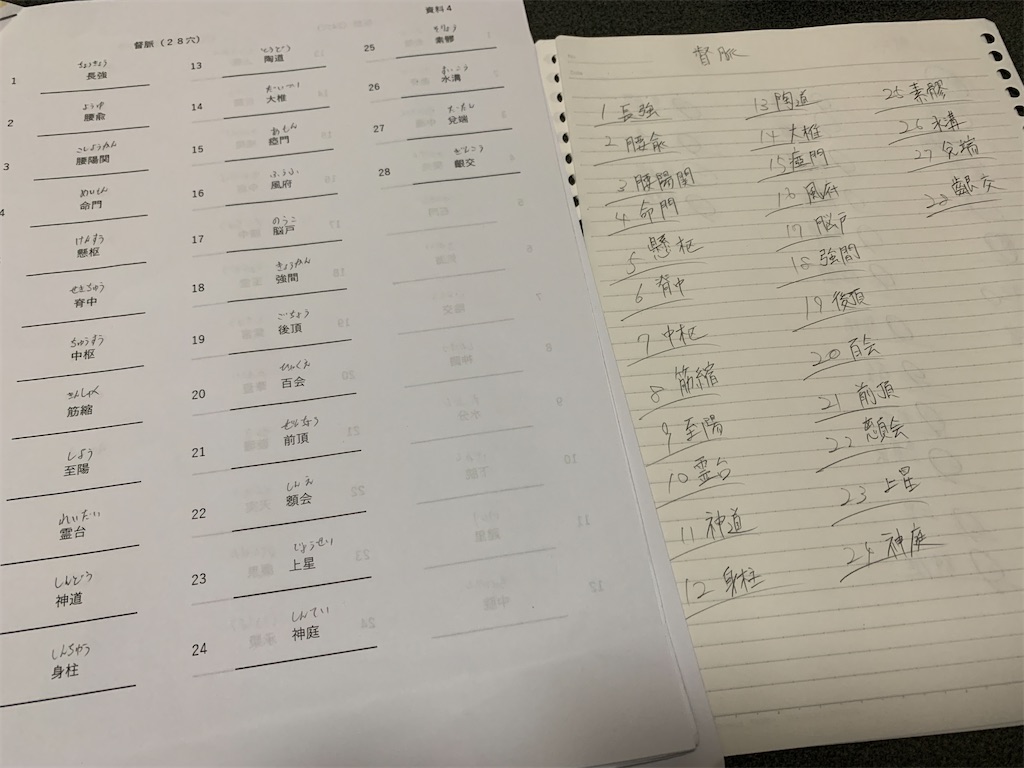 資料4
督脈(28穴)
1
ちょうきょう
長強
2
ようゆ
腰兪
3
こしようかん
腰陽関
4
めいもん
命門
けんすう
懸枢
せきちゅう
脊中
ちゅうすう
中枢
きんしゅく
筋縮
しよう
至陽
れいだい
霊台
しんどう
神道
しんちゅう
身柱
13
とうどう
陶道
14
だいつい
大椎
15
あもん
瘂門
16
ふうふ
風府
17
のうこ
脳戸
18
きょうかん
強間
19
ごちょう
後頂
20
ひゃくえ
百会
21
ぜんちょう
前頂
22
しんえ
顖会
23
じょうせい
上星
24
しんてい
神庭
25
そりょう
素髎
26
すいこう
水溝
27
だたん
兌端
28
ぎんこう
齦交
督脈
1 長強
2 腰兪
3 腰陽関
4 命門
5 懸枢
6 脊中
7 中枢
8 筋縮
9 至陽
10 霊台
11 神道
12 身柱
13 陶道
14 大椎
15 瘂門
16 風府
17 脳戸
18 強間
19 後頂
20 百会
21 前頂
22 顖会
23 上星
24 神庭
25 素髎
26 水溝
27 兌端
28 齦交